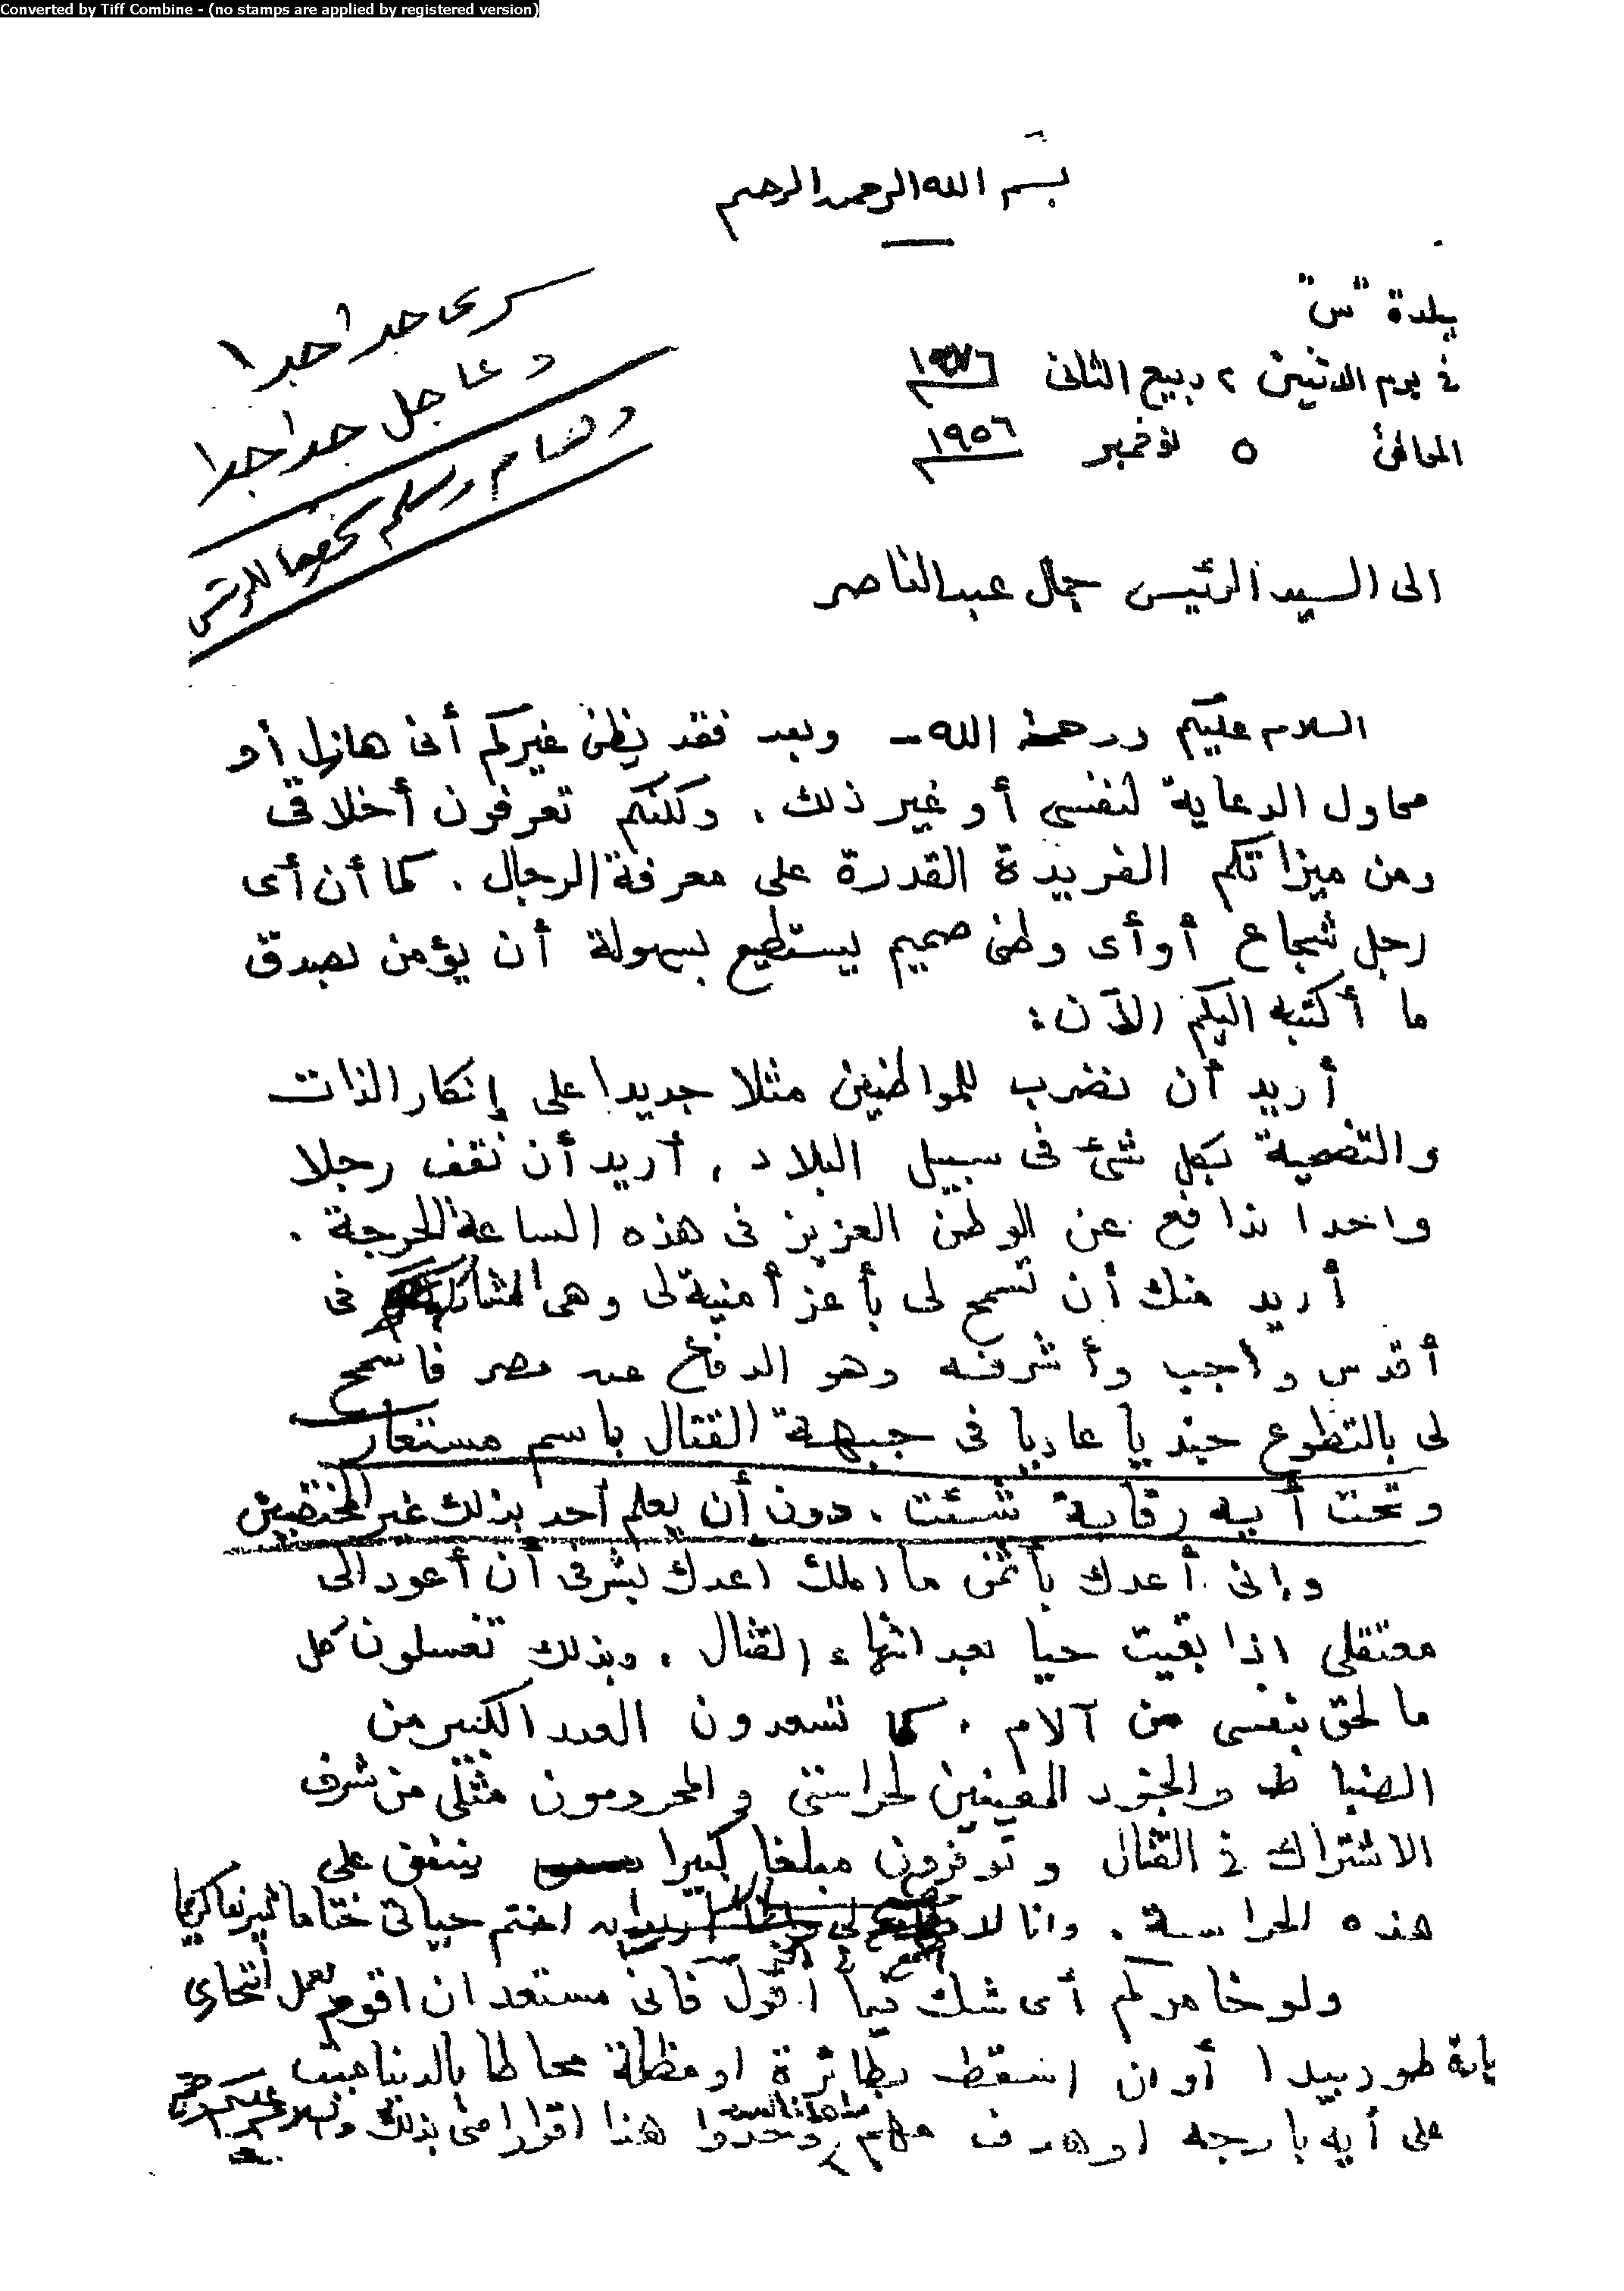 Converted by Tiff Combine - (no stamps are applied by registered version)
بسم الله الرحمن الرحيم
سرى جدا جدا
و عاجل جدا جدا
وهام ويسلم للرئيس
بلدة "س"
فى يوم الاثنين ٢ ربيع الثانى
الموافق ٥ نوفمبر ١٩٥٦
الى السيد الرئيس جمال عبد الناصر
السلام عليكم ورحمة الله - وبعد فقد يظن غيركم أنى هازل أو
محاول الدعاية لنفسى أو غير ذلك . ولكنكم تعرفون أخلاقى
ومن ميزاتكم الفريدة القدرة على معرفة الرجال . كما أن أى
رجل شجاع أو أى وطنى صميم يستطيع بسهولة أن يؤمن بصدق
ما أكتبه اليكم الآن :
أريد أن نضرب للمواطنين مثلا جديدا على إنكار الذات
والتضحية بكل شئ فى سبيل البلاد ، أريد أن نقف رجلا
واحدا ندافع عن الوطن العزيز فى هذه الساعة الحرجة .
أريد منك أن تسمح لى بأعز أمنية لى وهى فى
أقدس واجب وأشرفه وهو الدفاع عن مصر فاسمح
لى بالتطوع جنديا عاديا فى جبهة القتال باسم مستعار
وتحت أية رقابة شئت ، دون أن يعلم أحد بذلك غير المختصين
وإنى أعدك بأثمن ما املك اعدك بشرفى أن أعود الى
معتقلى اذا بقيت حيا بعد انتهاء القتال . وبذلك تغسلون كل
ما لحق بنفسى من آلام . كما تسعدون العدد الكبير من
الضباط والجنود المعينين لحراستى والمحرومون مثلى من شرف
الاشتراك فى القتال وتوفرون مبلغا كبيرا ينفق على
هذه الحراسة . وانا لا اختم حياتى ختاما كريما
ولو خامركم أى شك فيما أقول فانى مستعد ان اقوم بعمل انتحارى
طوربيدا أو ان اسقط بطائرة او مظلة محاطا بالديناميت
على أيه بارجه او هدف مهم وخذوا هذا اقرارا منى بذلك